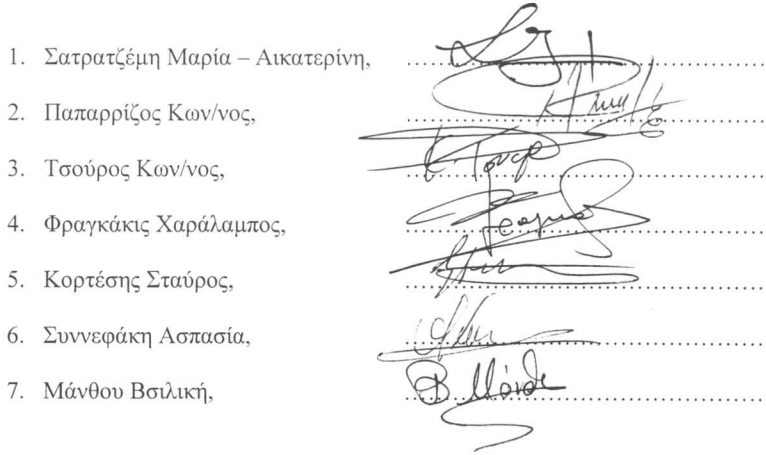 1. Σατρατζέμη Μαρία – Αικατερίνη, ...............
2. Παπαρρίζος Κων/νος, ...............
3. Τσούρος Κων/νος, ...............
4. Φραγκάκις Χαράλαμπος, ...............
5. Κορτέσης Σταύρος, ...............
6. Συννεφάκη Ασπασία, ...............
7. Μάνθου Βσιλική, ...............